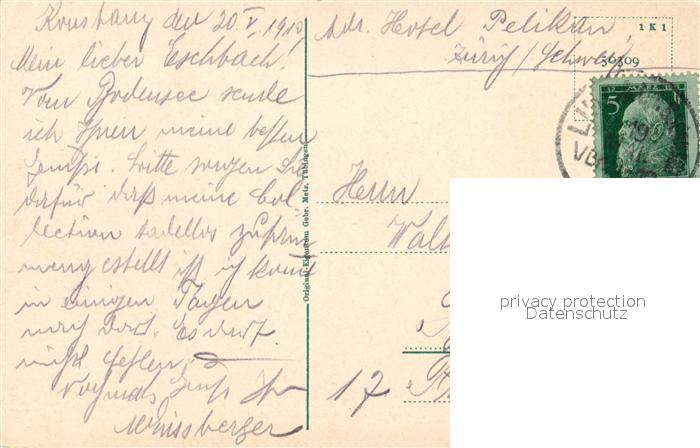 Konstanz den 20. V. 191
Mein lieber Eschbach!
Vom Bodensee sende
ich Ihnen meine besten
Grüße. Bitte sorgen Sie
dafür daß meine Col
lection tadellos zusam
mengestellt ist ich komme
in einigen Tagen
nach dort. Es darf
nichts fehlen.
Nochmals Gruß Ihr
Weissberger
Adr. Hotel Pelikan,
Zürich/Schweiz
1 K 1
36309
5
12 MÄRZ 1911
Original-Eigentum Gebr. Metz, Tübingen
Herrn
Walt
17
privacy protection
Datenschutz